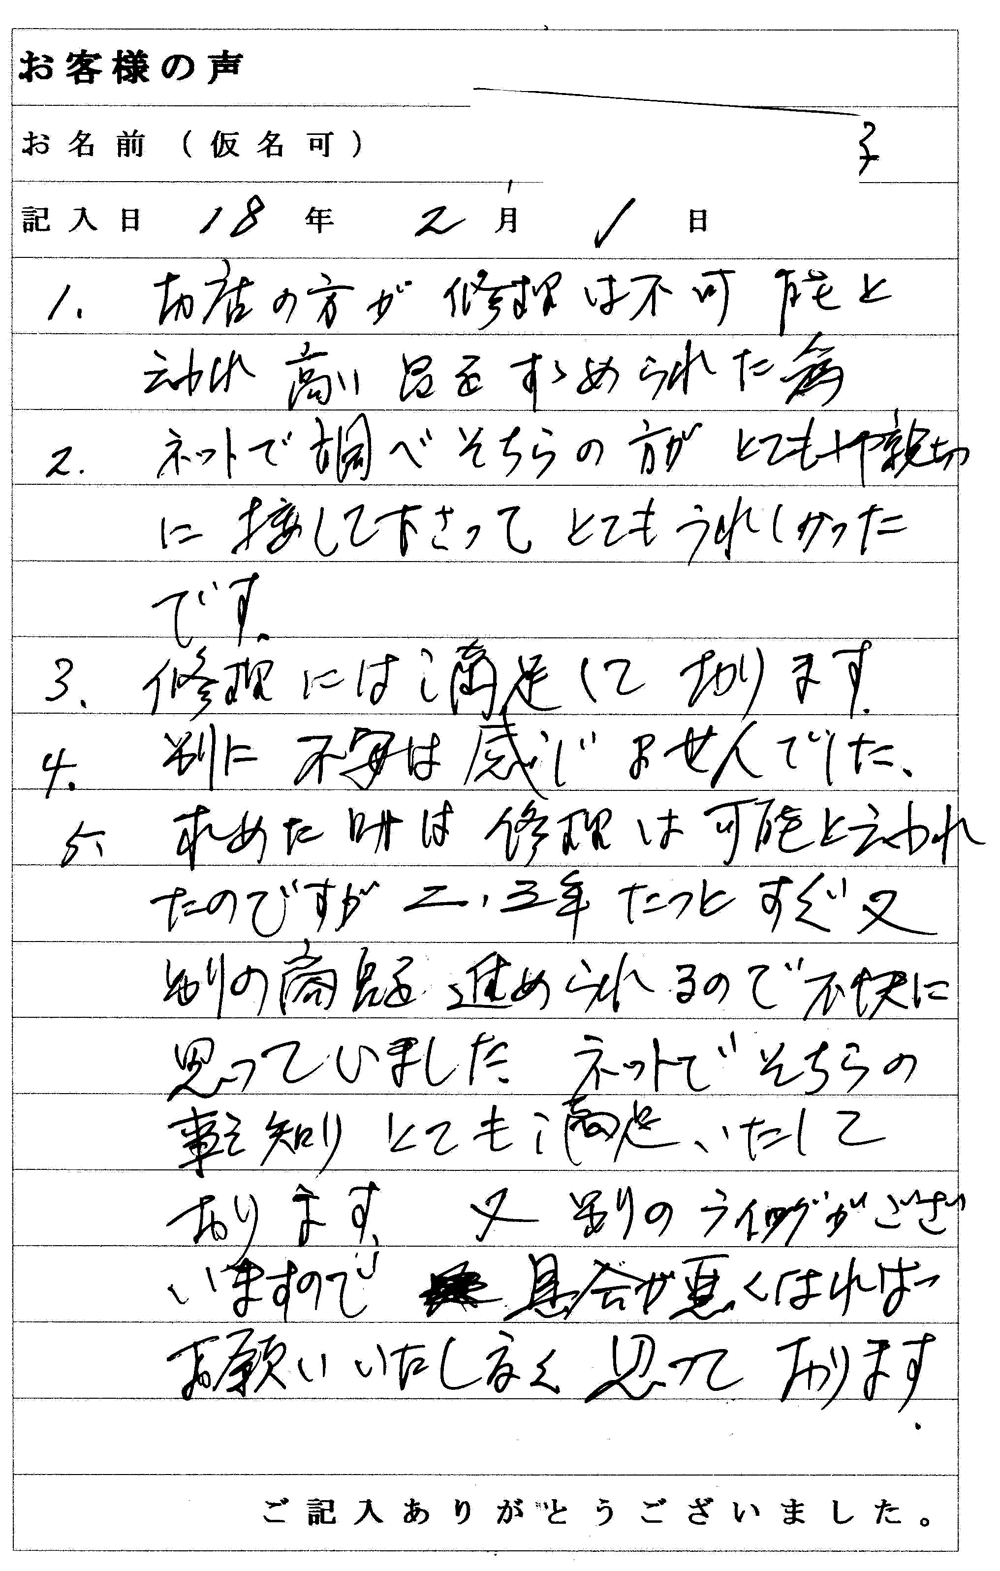 お客様の声
お名前(仮名可) 子
記入日 18年 2月 1日
1. お店の方が 修理は不可能と
云われ 高い品をすゝめられた為
2. ネットで調べそちらの方がとても親切
に接して下さってとてもうれしかった
です。
3. 修理には満足しております。
4. 別に不安は感じませんでした、
5、求めた時は修理は可能と云われ
たのですが 二、三年たつとすぐ又
別の商品を進められるので不快に
思っていました。ネットでそちらの
事を知りとても満足、いたして
おります。 又別のライティングがござ
いますので 具合が悪くなれば
お願いいたしたく思っております。
ご記入ありがとうございました。